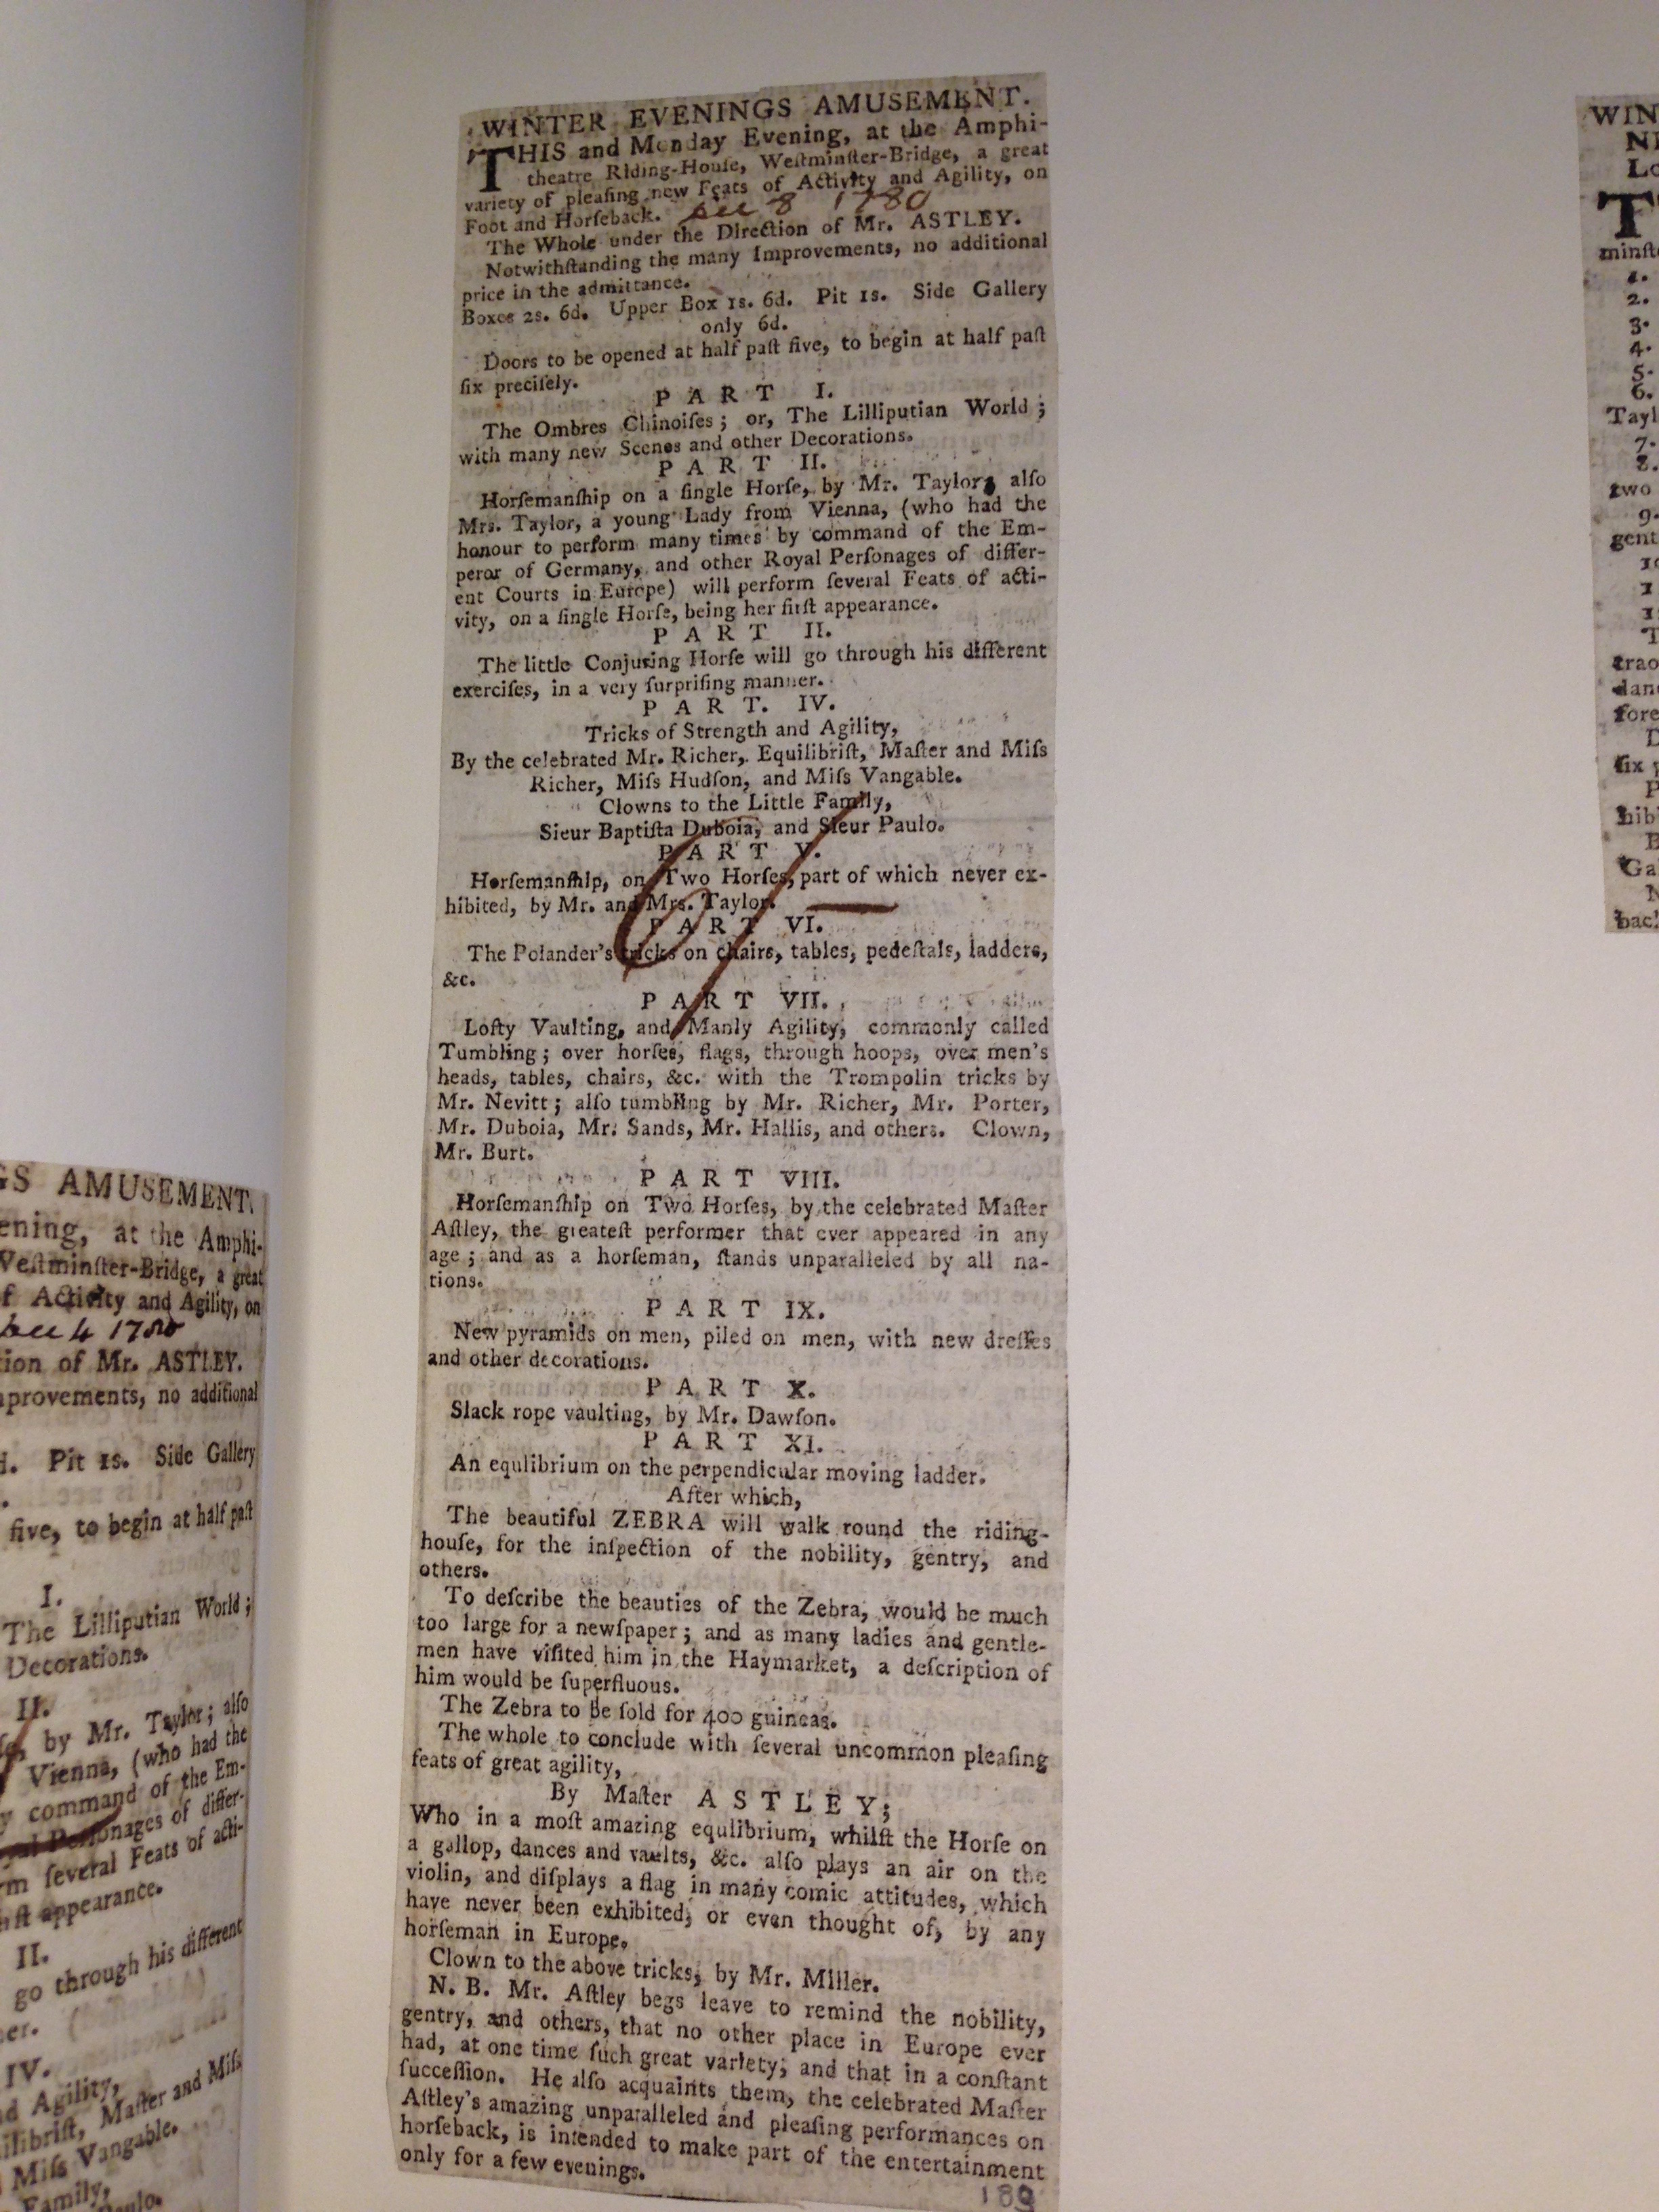 WINTER EVENINGS AMUSEMENT.
THIS and Monday Evening, at the Amphi-
theatre Riding-Houſe, Weſtminſter-Bridge, a great
variety of pleaſing new Feats of Activity and Agility, on
Foot and Horſeback. Dec 8 1780
The Whole under the Direction of Mr. ASTLEY.
Notwithſtanding the many Improvements, no additional
price in the admittance.
Boxes 2s. 6d. Upper Box 1s. 6d. Pit 1s. Side Gallery
only 6d.
Doors to be opened at half paſt five, to begin at half paſt
ſix preciſely.
PART I.
The Ombres Chinoiſes; or, The Lilliputian World;
with many new Scenes and other Decorations.
PART II.
Horſemanſhip on a ſingle Horſe, by Mr. Taylor; alſo
Mrs. Taylor, a young Lady from Vienna, (who had the
honour to perform many times by command of the Em-
peror of Germany, and other Royal Perſonages of differ-
ent Courts in Europe) will perform ſeveral Feats of acti-
vity, on a ſingle Horſe, being her firſt appearance.
PART II.
The little Conjuring Horſe will go through his different
exerciſes, in a very ſurpriſing manner.
PART. IV.
Tricks of Strength and Agility,
By the celebrated Mr. Richer, Equilibriſt, Maſter and Miſs
Richer, Miſs Hudſon, and Miſs Vangable.
Clowns to the Little Family,
Sieur Baptiſta Duboia, and Sieur Paulo.
PART V.
Horſemanſhip, on Two Horſes, part of which never ex-
hibited, by Mr. and Mrs. Taylor.
PART VI.
The Polander's tricks on chairs, tables, pedeſtals, ladders,
&c.
PART VII.
Lofty Vaulting, and Manly Agility, commonly called
Tumbling; over horſes, flags, through hoops, over men's
heads, tables, chairs, &c. with the Trompolin tricks by
Mr. Nevitt; alſo tumbling by Mr. Richer, Mr. Porter,
Mr. Duboia, Mr. Sands, Mr. Hallis, and others. Clown,
Mr. Burt.
PART VIII.
Horſemanſhip on Two Horſes, by the celebrated Maſter
Aſtley, the greateſt performer that ever appeared in any
age; and as a horſeman, ſtands unparalleled by all na-
tions.
PART IX.
New pyramids on men, piled on men, with new dreſſes
and other decorations.
PART X.
Slack rope vaulting, by Mr. Dawſon.
PART XI.
An equlibrium on the perpendicular moving ladder.
After which,
The beautiful ZEBRA will walk round the riding-
houſe, for the inſpection of the nobility, gentry, and
others.
To deſcribe the beauties of the Zebra, would be much
too large for a newſpaper; and as many ladies and gentle-
men have viſited him in the Haymarket, a deſcription of
him would be ſuperfluous.
The Zebra to be ſold for 400 guineas.
The whole to conclude with ſeveral uncommon pleaſing
feats of great agility,
By Maſter ASTLEY;
Who in a moſt amazing equlibrium, whilſt the Horſe on
a gallop, dances and vaults, &c. alſo plays an air on the
violin, and diſplays a flag in many comic attitudes, which
have never been exhibited, or even thought of, by any
horſeman in Europe.
Clown to the above tricks, by Mr. Miller.
N. B. Mr. Aſtley begs leave to remind the nobility,
gentry, and others, that no other place in Europe ever
had, at one time ſuch great variety; and that in a conſtant
ſucceſſion. He alſo acquaints them, the celebrated Maſter
Aſtley's amazing unparalleled and pleaſing performances on
horſeback, is intended to make part of the entertainment
only for a few evenings.
189
GS AMUSEMENT.
ening, at the Amphi-
Weſtminſter-Bridge, a great
f Activity and Agility, on
Dec 4 1780
tion of Mr. ASTLEY.
mprovements, no additional
d. Pit 1s. Side Gallery
five, to begin at half paſt
I.
The Lilliputian World;
Decorations.
II.
by Mr. Taylor; alſo
Vienna, (who had the
y command of the Em-
Perſonages of differ-
rm ſeveral Feats of acti-
appearance.
II.
go through his different
er.
IV.
d Agility,
ilibriſt, Maſter and Miſs
Miſs Vangable.
Family,
WIN
NE
Lo
T
minſt
1.
2.
3.
4.
5.
6.
Tayl
7.
8.
two
9.
gent
10
1
1
T
trao
dan
fore
D
ſix
P
hib
B
Ga
N
bac